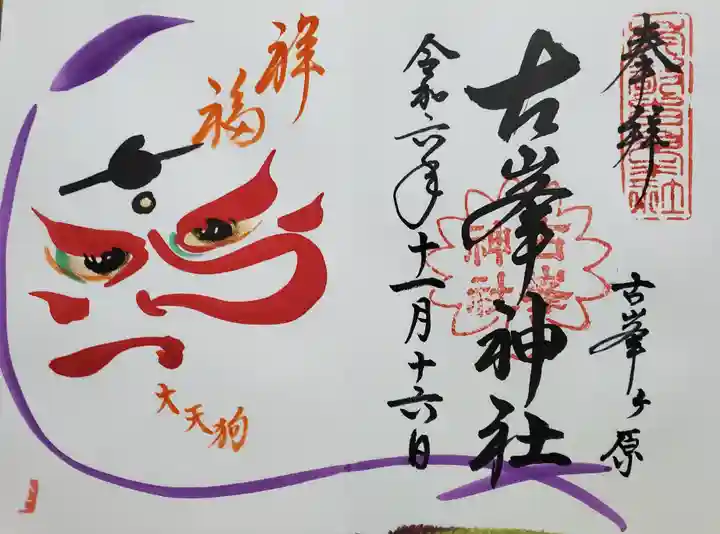 奉拝
古峯ヶ原
古峯神社
古峯神社
令和六年十一月十六日
祥福
大天狗